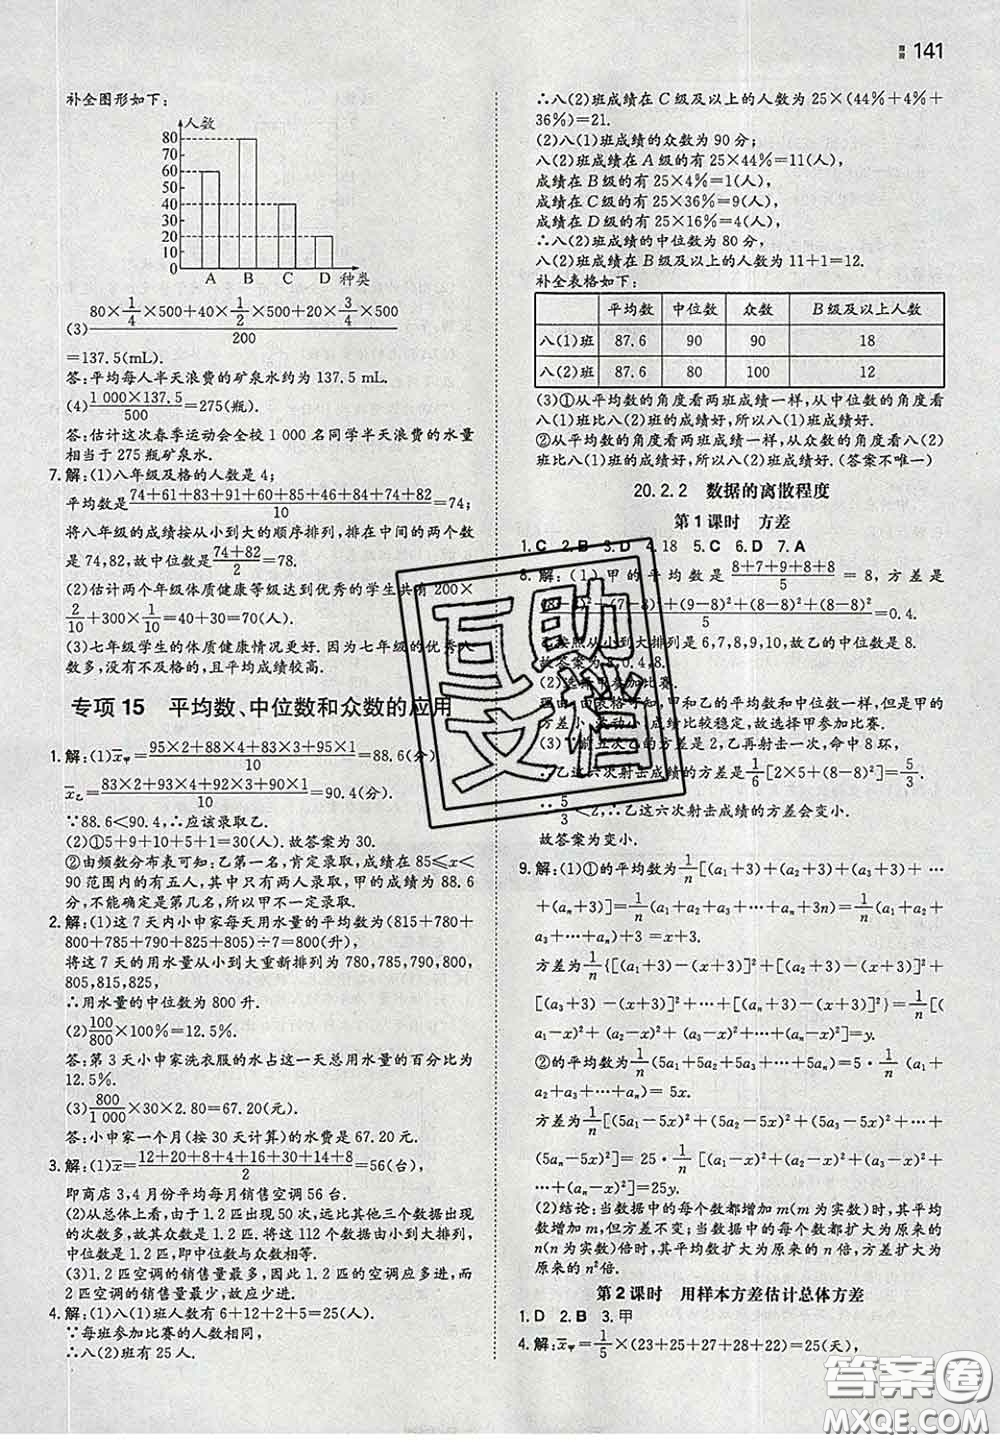 141
补全图形如下:
人数
80
70
60
50
40
30
20
10
0
A B C D 种类
(3) (80×1/4×500+40×1/2×500+20×3/4×500)/200
=137.5(mL).
答:平均每人半天浪费的矿泉水约为 137.5 mL.
(4) (1 000×137.5)/500=275(瓶).
答:估计这次春季运动会全校 1 000 名同学半天浪费的水量
相当于 275 瓶矿泉水.
7. 解:(1)八年级及格的人数是 4;
平均数是(74+61+83+91+60+85+46+84+74+82)/10=74;
将八年级的成绩按从小到大的顺序排列,排在中间的两个数
是 74,82,故中位数是(74+82)/2=78.
(2)估计两个年级体质健康等级达到优秀的学生共有 200×
2/10+300×1/10=40+30=70(人).
(3)七年级学生的体质健康情况更好.因为七年级的优秀人
数多,没有不及格的,且平均成绩较高.
专项 15 平均数、中位数和众数的应用
1. 解:(1)x̄甲=(95×2+88×4+83×3+95×1)/10=88.6(分)
x̄乙=(83×2+93×4+92×3+90×1)/10=90.4(分).
∵88.6<90.4,∴应该录取乙.
(2)①5+9+10+5+1=30(人).故答案为 30.
②由频数分布表可知:乙第一名,肯定录取,成绩在 85≤x<
90 范围内的有五人,其中只有两人录取,甲的成绩为 88.6
分,不能确定是第几名,所以甲不一定录取.
2. 解:(1)这 7 天内小申家每天用水量的平均数为(815+780+
800+785+790+825+805)÷7=800(升),
将这 7 天的用水量从小到大重新排列为 780,785,790,800,
805,815,825,
∴用水量的中位数为 800 升.
(2)100/800×100%=12.5%.
答:第 3 天小申家洗衣服的水占这一天总用水量的百分比为
12.5%.
(3)800/1 000×30×2.80=67.20(元),
答:小申家一个月(按 30 天计算)的水费是 67.20 元.
3. 解:(1)x̄=(12+20+8+4+16+30+14+8)/2=56(台),
即商店 3,4 月份平均每月销售空调 56 台.
(2)从总体上看,由于 1.2 匹出现 50 次,远比其他三个数据出现
的次数多,故其众数是 1.2 匹.将这 112 个数据由小到大排列,
中位数是 1.2 匹,即中位数与众数相等.
(3)1.2 匹空调的销售量最大,所以 1.2 匹的空调应多进,而
2 匹空调的销售量较少,故应少进.
4. 解:(1)八(1)班人数有 6+12+2+5=25(人).
∵每班参加比赛的人数相同,
∴八(2)班有 25 人.
∴八(2)班成绩在 C 级及以上的人数为 25×(44%+4%+
36%)=21.
(2)八(1)班成绩的众数为 90 分;
八(2)班成绩在 A 级的有 25×44%=11(人),
成绩在 B 级的有 25×4%=1(人),
成绩在 C 级的有 25×36%=9(人),
成绩在 D 级的有 25×16%=4(人),
∴八(2)班成绩的中位数为 80 分,
八(2)班成绩在 B 级及以上的人数为 11+1=12.
补全表格如下:
平均数 中位数 众数 B 级及以上人数
八(1)班 87.6 90 90 18
八(2)班 87.6 80 100 12
(3)①从平均数的角度看两班成绩一样,从中位数的角度看
八(1)班比八(2)班的成绩好,所以八(1)班成绩好.
②从平均数的角度看两班成绩一样,从众数的角度看八(2)
班比八(1)班的成绩好,所以八(2)班成绩好.(答案不唯一)
20.2.2 数据的离散程度
第 1 课时 方差
1. C 2. B 3. D 4. 18 5. C 6. D 7. A
8. 解:(1)甲的平均数是(8+7+9+8+8)/5=8,方差是
(8-8)²+(7-8)²+(9-8)²+(8-8)²+(8-8)²/5=0.4.
乙按照从小到大排列是 6,7,8,9,10,故乙的中位数是 8.
故答案为 8,0.4,8.
(2)选择甲参加比赛.
理由:由表格可知,甲和乙的平均数和中位数一样,但是甲的
方差小,波动小,成绩比较稳定,故选择甲参加比赛.
(3)∵前五次乙的方差是 2,乙再射击一次,命中 8 环,
∴乙这六次射击成绩的方差是1/6[2×5+(8-8)²]=5/3.
∵5/3<2,∴乙这六次射击成绩的方差会变小.
故答案为变小.
9. 解:(1)①的平均数为1/n[(a₁+3)+(a₂+3)+(a₃+3)+…
+(aₙ+3)]=1/n(a₁+a₂+a₃+…+aₙ+3n)=1/n(a₁+a₂+
a₃+…+aₙ)+3=x+3.
方差为1/n{[(a₁+3)-(x+3)]²+[(a₂+3)-(x+3)]²+
[(a₃+3)-(x+3)]²+…+[(aₙ+3)-(x+3)]²}=1/n[(
a₁-x)²+(a₂-x)²+(a₃-x)²+…+(aₙ-x)²]=y.
②的平均数为1/n(5a₁+5a₂+5a₃+…+5aₙ)=5·1/n(a₁+
a₂+a₃+…+aₙ)=5x.
方差为1/n[(5a₁-5x)²+(5a₂-5x)²+(5a₃-5x)²+…+
(5aₙ-5x)²]=25·1/n[(a₁-x)²+(a₂-x)²+(a₃-x)²+…+
(aₙ-x)²]=25y.
(2)结论:当数据中的每个数都增加 m(m 为实数)时,其平均
数增加 m,但方差不变;当数据中的每个数都扩大为原来的
n(n 为实数)倍时,其平均数扩大为原来的 n 倍,方差扩大为
原来的 n²倍.
第 2 课时 用样本方差估计总体方差
1. D 2. B 3. 甲
4. 解:x̄甲=1/5×(23+25+27+28+22)=25(天),
互助
文档
答案圈
MXQE.COM